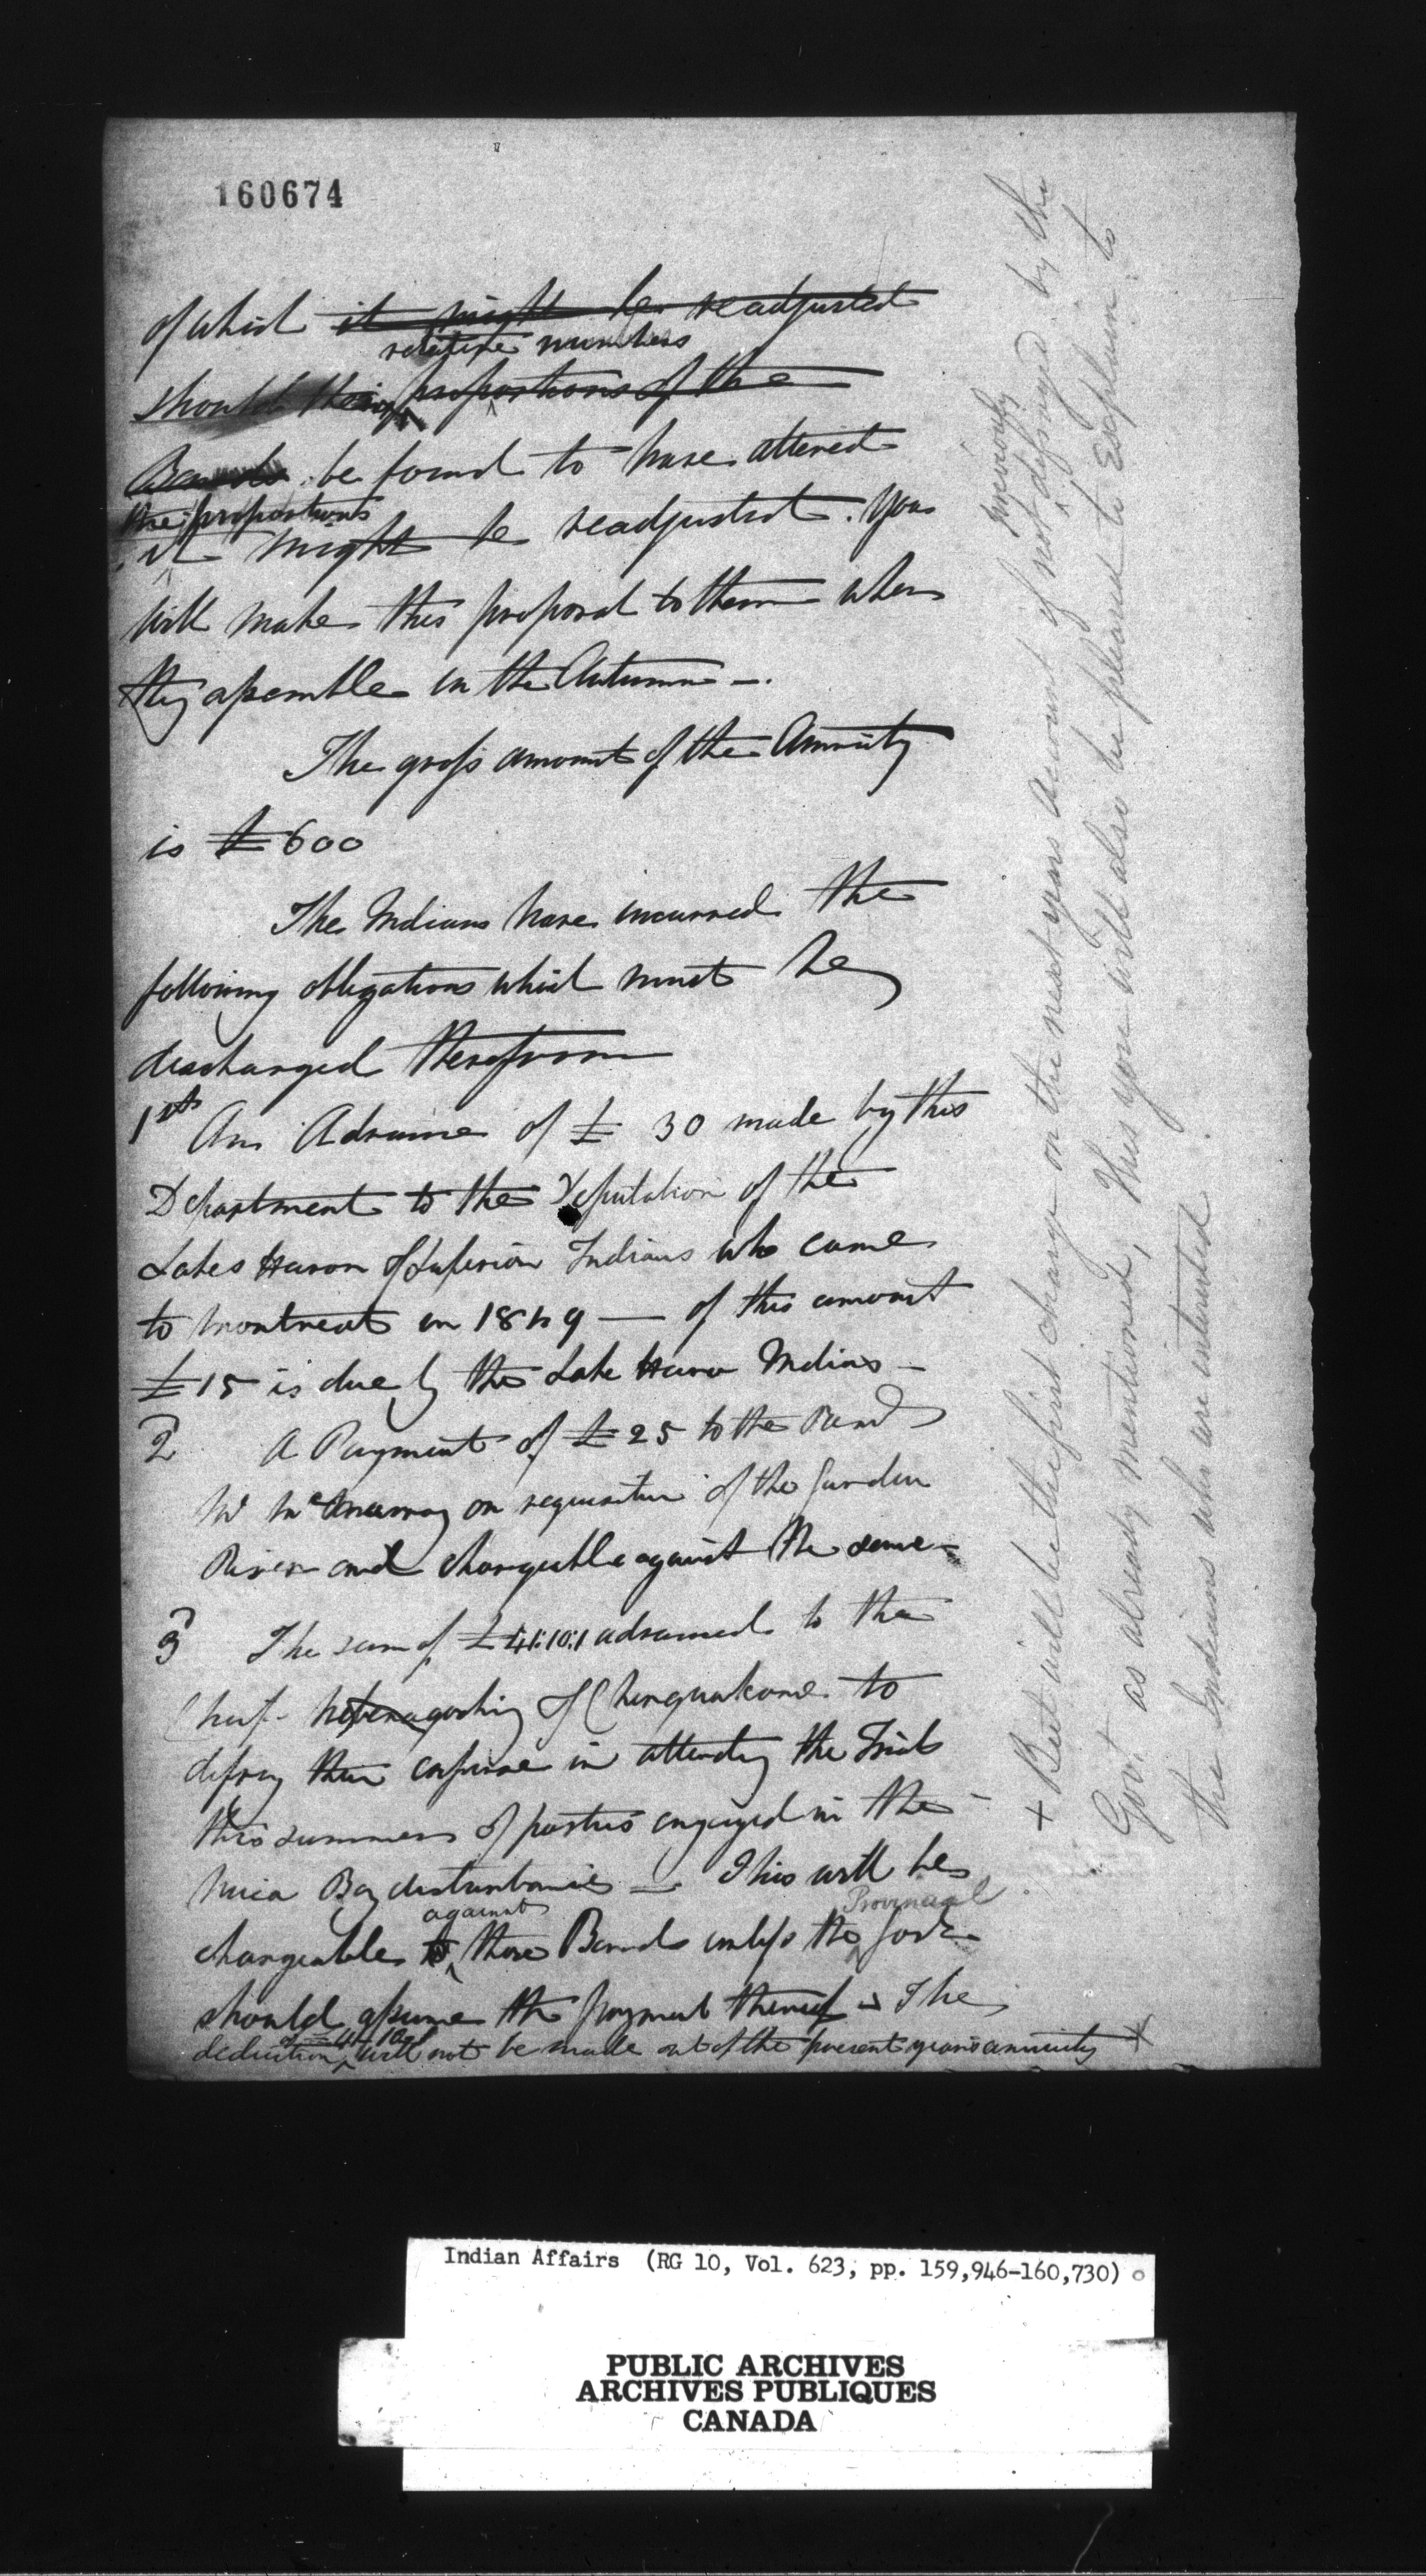 160674
of which it might be readjusted
relative numbers
should their proportions of the
Bands be found to have altered
the proportions
it might be readjusted. You
will make this proposal to them when
they assemble in the Autumn —.
The gross amount of the Annuity
is £600
The Indians have incurred the
following obligations which must be
discharged therefrom
1st An Advance of £ 30 made by this
Department to the Deputation of the
Lakes Huron & Superior Indians who came
to Montreal in 1849 — of this amount
£15 is due by the Lake Huron Indians —
2 A Payment of £25 to the Revd
W McMurray on requisition of the Garden
River and chargeable against the same —
3 The sum of £41:10:1 advanced to the
Chiefs & Chinguakonse to
defray their expense in attending the Trials
this summer of parties engaged in the
Mica Bay disturbances — This will be
against Provincial
chargeable to those Bands unless the Govt
should assume the payment thereof — The
of £41.10.1
deduction will not be made out of the present years annuity +
+ But will be the first charge on the next years account if not defrayed by the
previously
Govt as already mentioned, this you will also be pleased to Explain to
the Indians who are interested.
Indian Affairs (RG 10, Vol. 623, pp. 159,946-160,730)
PUBLIC ARCHIVES
ARCHIVES PUBLIQUES
CANADA